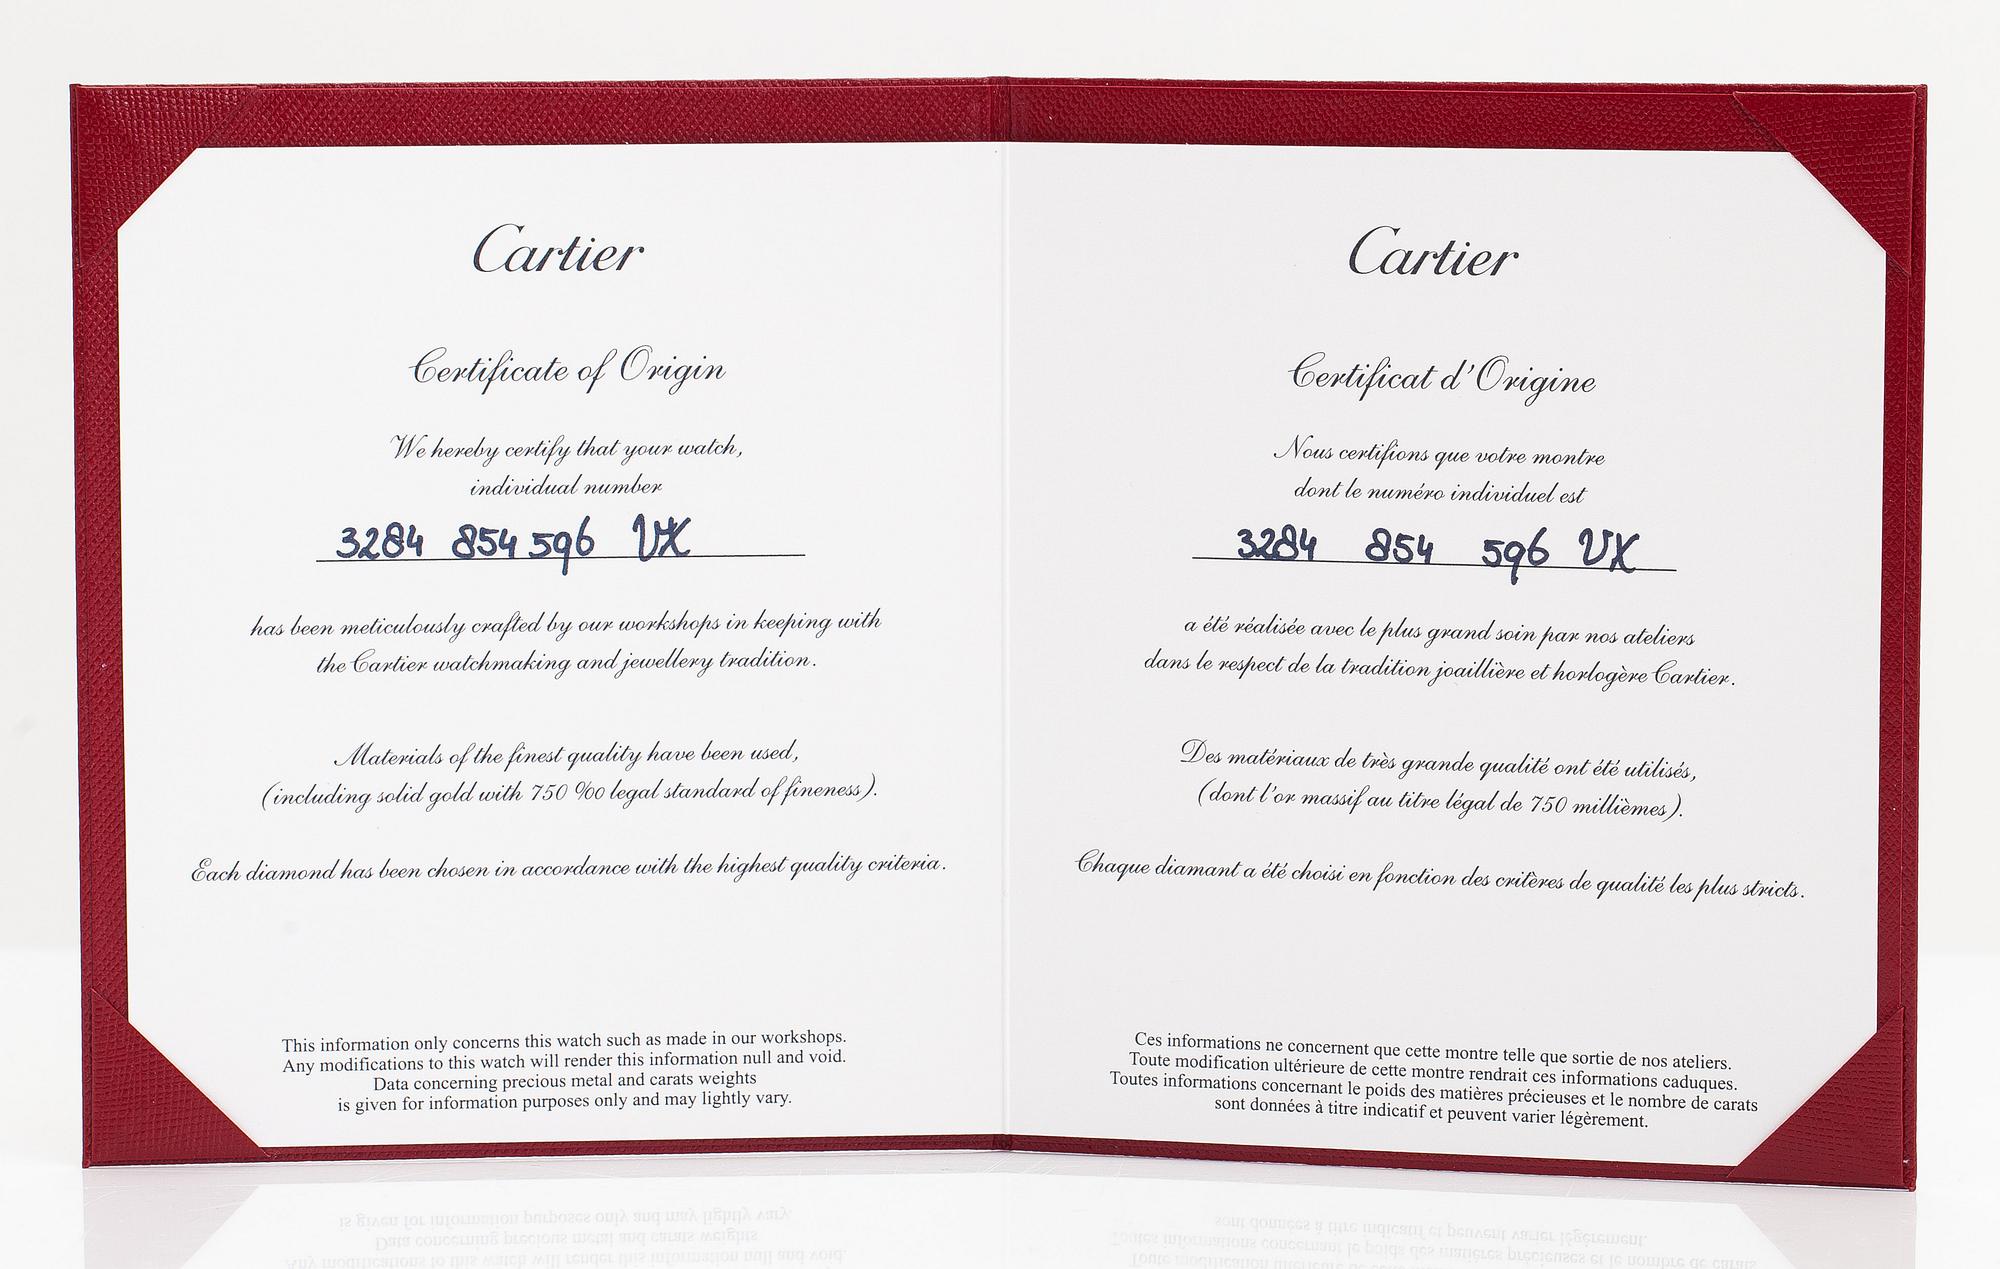 Cartier
Certificate of Origin
We hereby certify that your watch,
individual number
3284 854 596 VX
has been meticulously crafted by our workshops in keeping with
the Cartier watchmaking and jewellery tradition.
Materials of the finest quality have been used,
(including solid gold with 750 ‰ legal standard of fineness).
Each diamond has been chosen in accordance with the highest quality criteria.
This information only concerns this watch such as made in our workshops.
Any modifications to this watch will render this information null and void.
Data concerning precious metal and carats weights
is given for information purposes only and may lightly vary.
Cartier
Certificat d'Origine
Nous certifions que votre montre
dont le numéro individuel est
3284 854 596 VX
a été réalisée avec le plus grand soin par nos ateliers
dans le respect de la tradition joaillière et horlogère Cartier.
Des matériaux de très grande qualité ont été utilisés,
(dont l'or massif au titre légal de 750 millièmes).
Chaque diamant a été choisi en fonction des critères de qualité les plus stricts.
Ces informations ne concernent que cette montre telle que sortie de nos ateliers.
Toute modification ultérieure de cette montre rendrait ces informations caduques.
Toutes informations concernant le poids des matières précieuses et le nombre de carats
sont données à titre indicatif et peuvent varier légèrement.